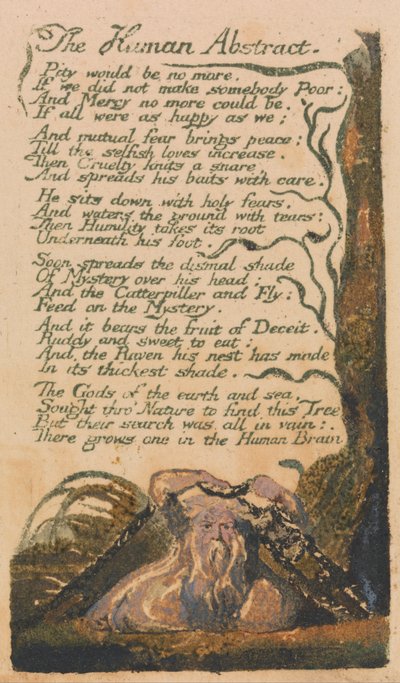 The Human Abstract.
Pity would be no more,
If we did not make somebody Poor:
And Mercy no more could be,
If all were as happy as we;
And mutual fear brings peace;
Till the selfish loves increase
Then Cruelty knits a snare,
And spreads his baits with care.
He sits down with holy fears,
And waters the ground with tears:
Then Humility takes its root
Underneath his foot.
Soon spreads the dismal shade
Of Mystery over his head;
And the Catterpiller and Fly,
Feed on the Mystery.
And it bears the fruit of Deceit,
Ruddy and sweet to eat;
And the Raven his nest has made
In its thickest shade.
The Gods of the earth and sea,
Sought thro' Nature to find this Tree
But their search was all in vain:
There grows one in the Human Brain